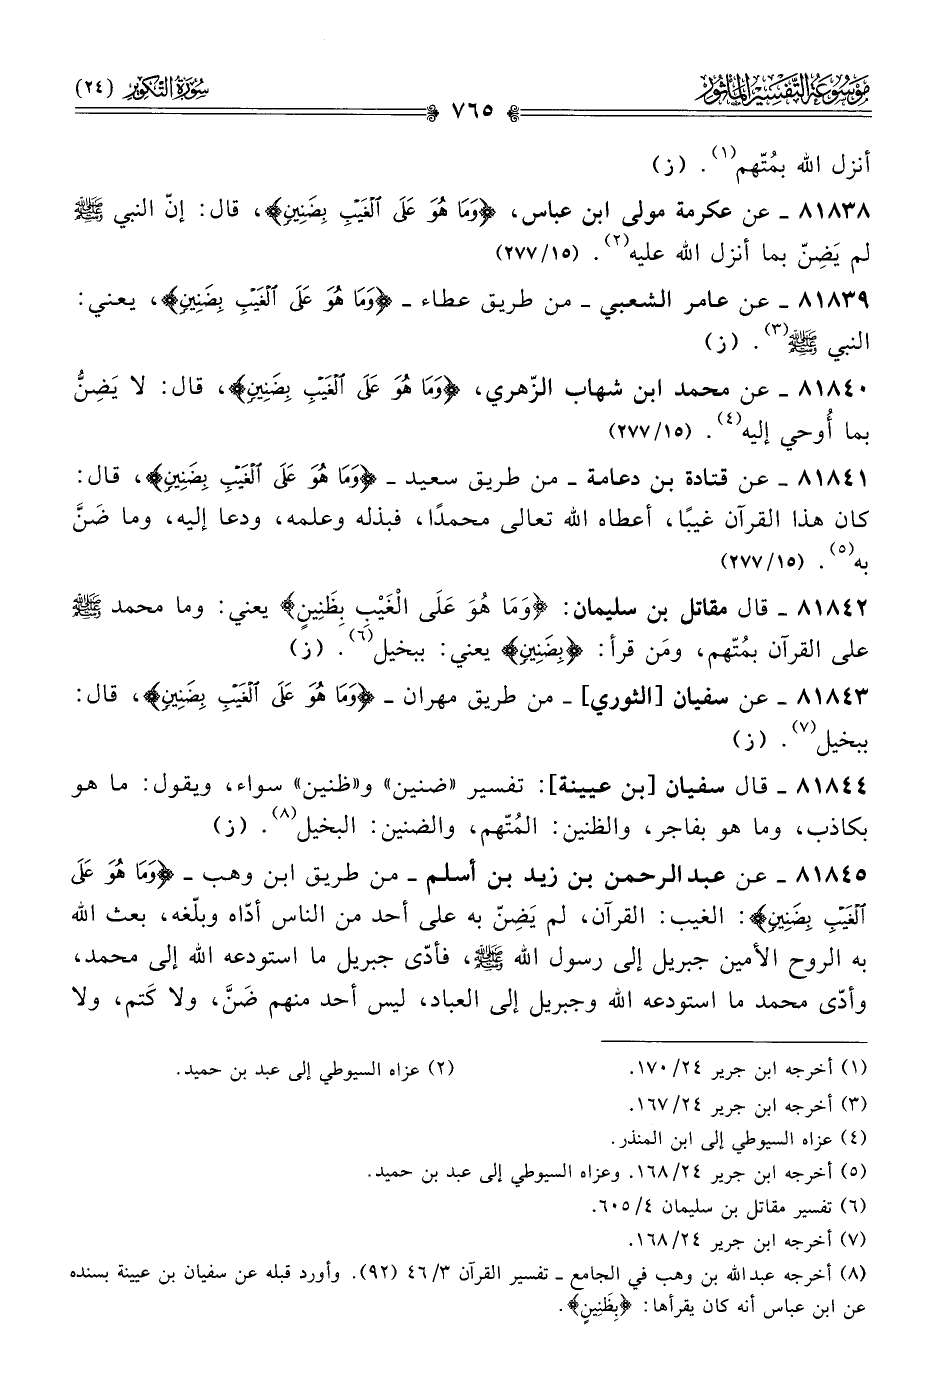 مَوْسُوعَةُ التَّفْسِيرِ المَأْثُورِ
سُورَةُ التَّكْوِيرِ (٢٤)
٧٦٥
أنزل الله بمُتّهم(١). (ز)
٨١٨٣٨ ـ عن عكرمة مولى ابن عباس، ﴿وَمَا هُوَ عَلَى ٱلْغَيْبِ بِضَنِينٍ﴾، قال: إنّ النبي ﷺ
لم يَضِنّ بما أنزل الله عليه(٢). (٢٧٧/١٥)
٨١٨٣٩ ـ عن عامر الشعبي ـ من طريق عطاء ـ ﴿وَمَا هُوَ عَلَى ٱلْغَيْبِ بِضَنِينٍ﴾، يعني:
النبي ﷺ(٣). (ز)
٨١٨٤٠ ـ عن محمد ابن شهاب الزّهري، ﴿وَمَا هُوَ عَلَى ٱلْغَيْبِ بِضَنِينٍ﴾، قال: لا يَضِنُّ
بما أُوحي إليه(٤). (٢٧٧/١٥)
٨١٨٤١ ـ عن قتادة بن دعامة ـ من طريق سعيد ـ ﴿وَمَا هُوَ عَلَى ٱلْغَيْبِ بِضَنِينٍ﴾، قال:
كان هذا القرآن غيبًا، أعطاه الله تعالى محمدًا، فبذله وعلمه، ودعا إليه، وما ضَنَّ
به(٥). (٢٧٧/١٥)
٨١٨٤٢ ـ قال مقاتل بن سليمان: ﴿وَمَا هُوَ عَلَى الْغَيْبِ بِظَنِينٍ﴾ يعني: وما محمد ﷺ
على القرآن بمُتّهم، ومَن قرأ: ﴿بِضَنِينٍ﴾ يعني: ببخيل(٦). (ز)
٨١٨٤٣ ـ عن سفيان [الثوري] ـ من طريق مهران ـ ﴿وَمَا هُوَ عَلَى ٱلْغَيْبِ بِضَنِينٍ﴾، قال:
ببخيل(٧). (ز)
٨١٨٤٤ ـ قال سفيان [بن عيينة]: تفسير «ضنين» و«ظنين» سواء، ويقول: ما هو
بكاذب، وما هو بفاجر، والظنين: المُتّهم، والضنين: البخيل(٨). (ز)
٨١٨٤٥ ـ عن عبدالرحمن بن زيد بن أسلم ـ من طريق ابن وهب ـ ﴿وَمَا هُوَ عَلَى
ٱلْغَيْبِ بِضَنِينٍ﴾: الغيب: القرآن، لم يَضِنّ به على أحد من الناس أدّاه وبلّغه، بعث الله
به الروح الأمين جبريل إلى رسول الله ﷺ، فأدّى جبريل ما استودعه الله إلى محمد،
وأدّى محمد ما استودعه الله وجبريل إلى العباد، ليس أحد منهم ضَنَّ، ولا كَتم، ولا
(١) أخرجه ابن جرير ٢٤/ ١٧٠.
(٢) عزاه السيوطي إلى عبد بن حميد.
(٣) أخرجه ابن جرير ٢٤/ ١٦٧.
(٤) عزاه السيوطي إلى ابن المنذر.
(٥) أخرجه ابن جرير ٢٤/ ١٦٨. وعزاه السيوطي إلى عبد بن حميد.
(٦) تفسير مقاتل بن سليمان ٤/ ٦٠٥.
(٧) أخرجه ابن جرير ٢٤/ ١٦٨.
(٨) أخرجه عبدالله بن وهب في الجامع ـ تفسير القرآن ٣/ ٤٦ (٩٢). وأورد قبله عن سفيان بن عيينة بسنده
عن ابن عباس أنه كان يقرأها: ﴿بِظَنِينٍ﴾.